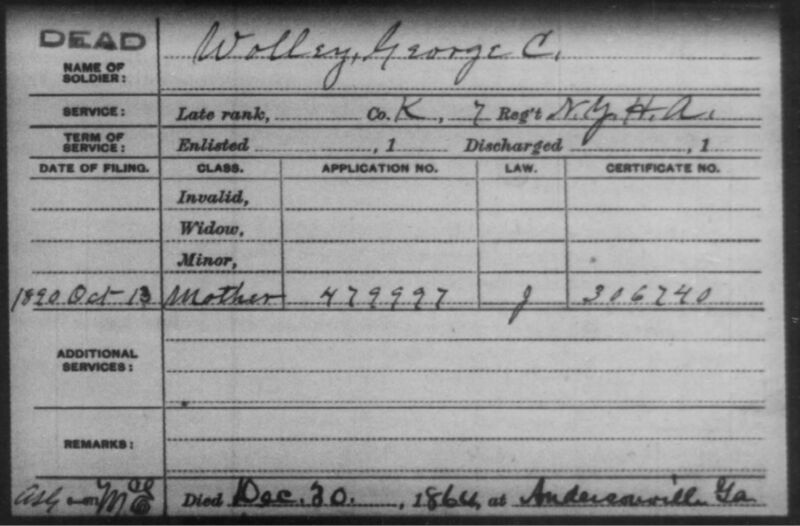 DEAD
Wolley, George C.
NAME OF SOLDIER:
SERVICE: Late rank, Co. K, 7 Reg't N.Y.H.A.
TERM OF SERVICE: Enlisted , 1 Discharged , 1
DATE OF FILING. CLASS. APPLICATION NO. LAW. CERTIFICATE NO.
Invalid,
Widow,
Minor,
1890 Oct 13 Mother 479997 J 306740
ADDITIONAL SERVICES:
REMARKS:
Died Dec. 20, 1864, at Andersonville Ga